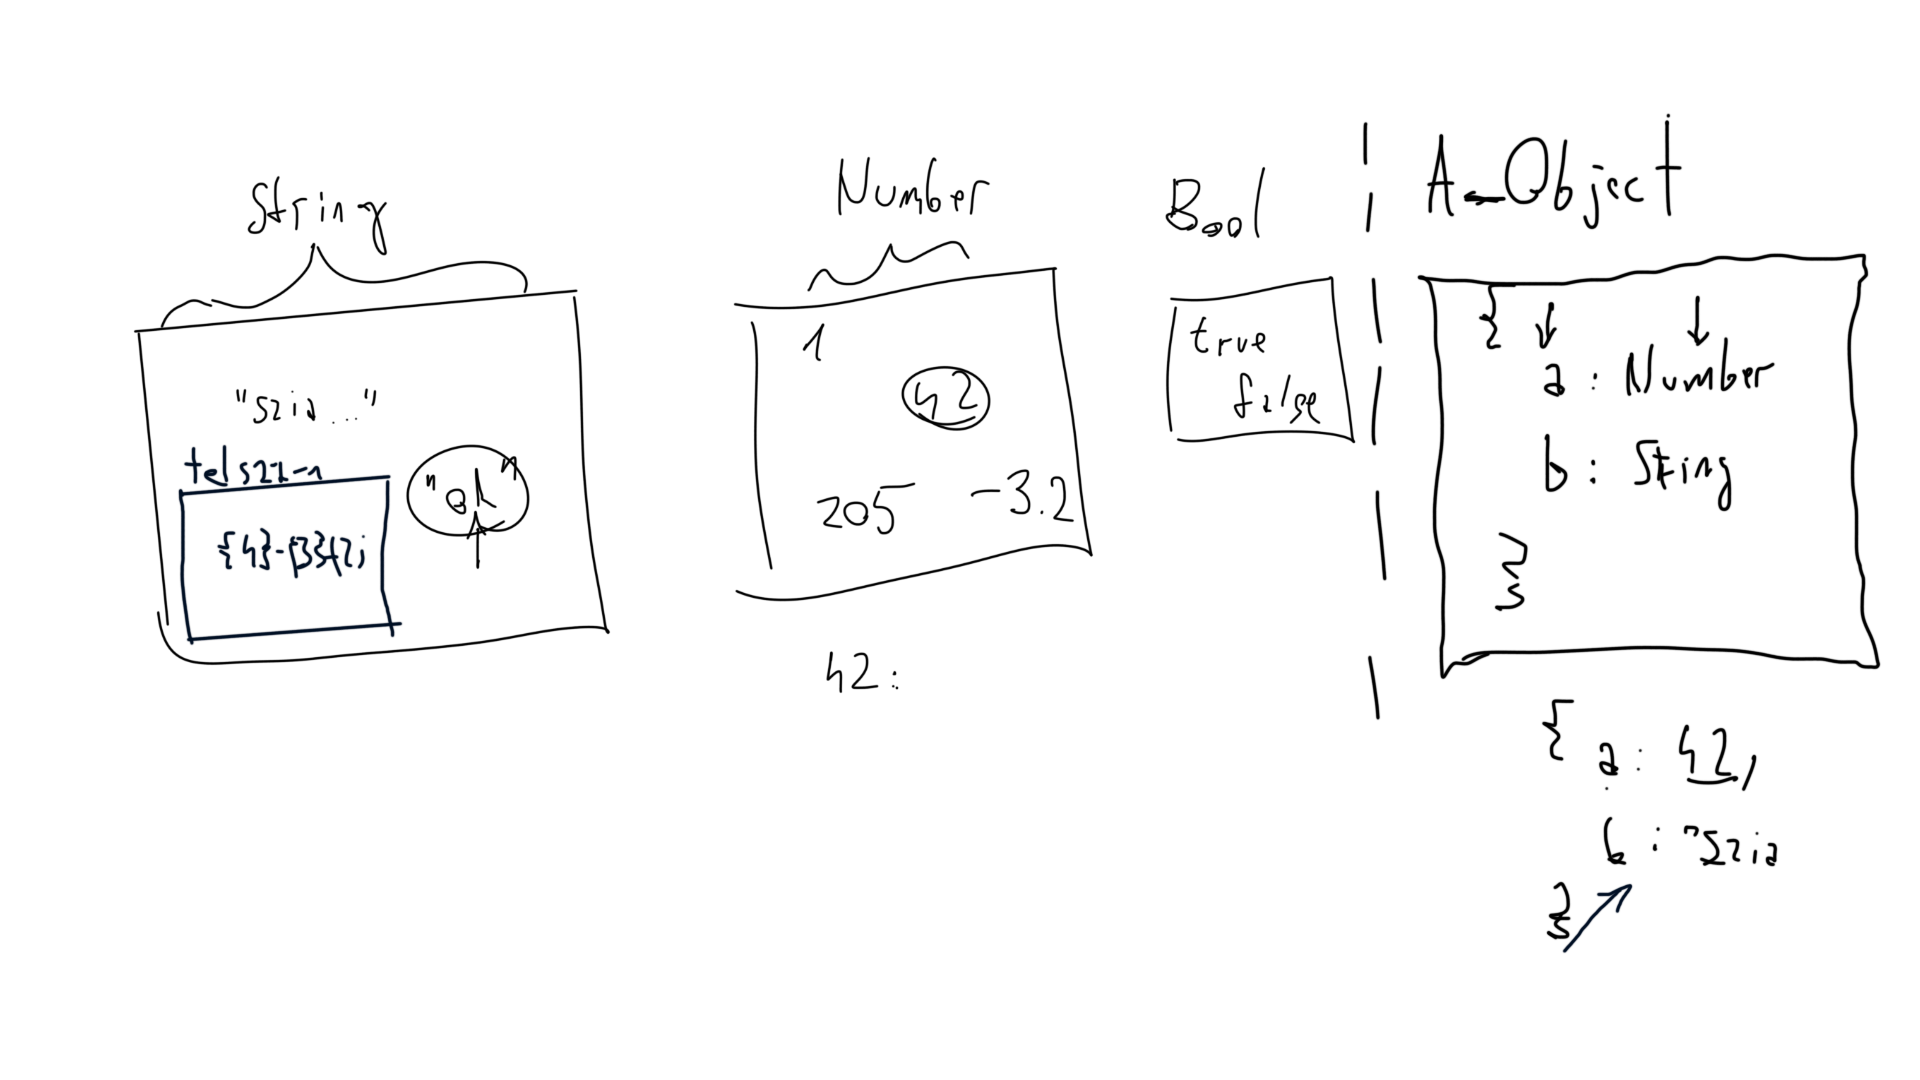 String
"Szia..."
telszám
"ok"
Number
1
42
205 -3.2
42:
Bool
true
false
A_Object
{
a : Number
b : Sting
}
{
a : 42,
b : "Szia
}